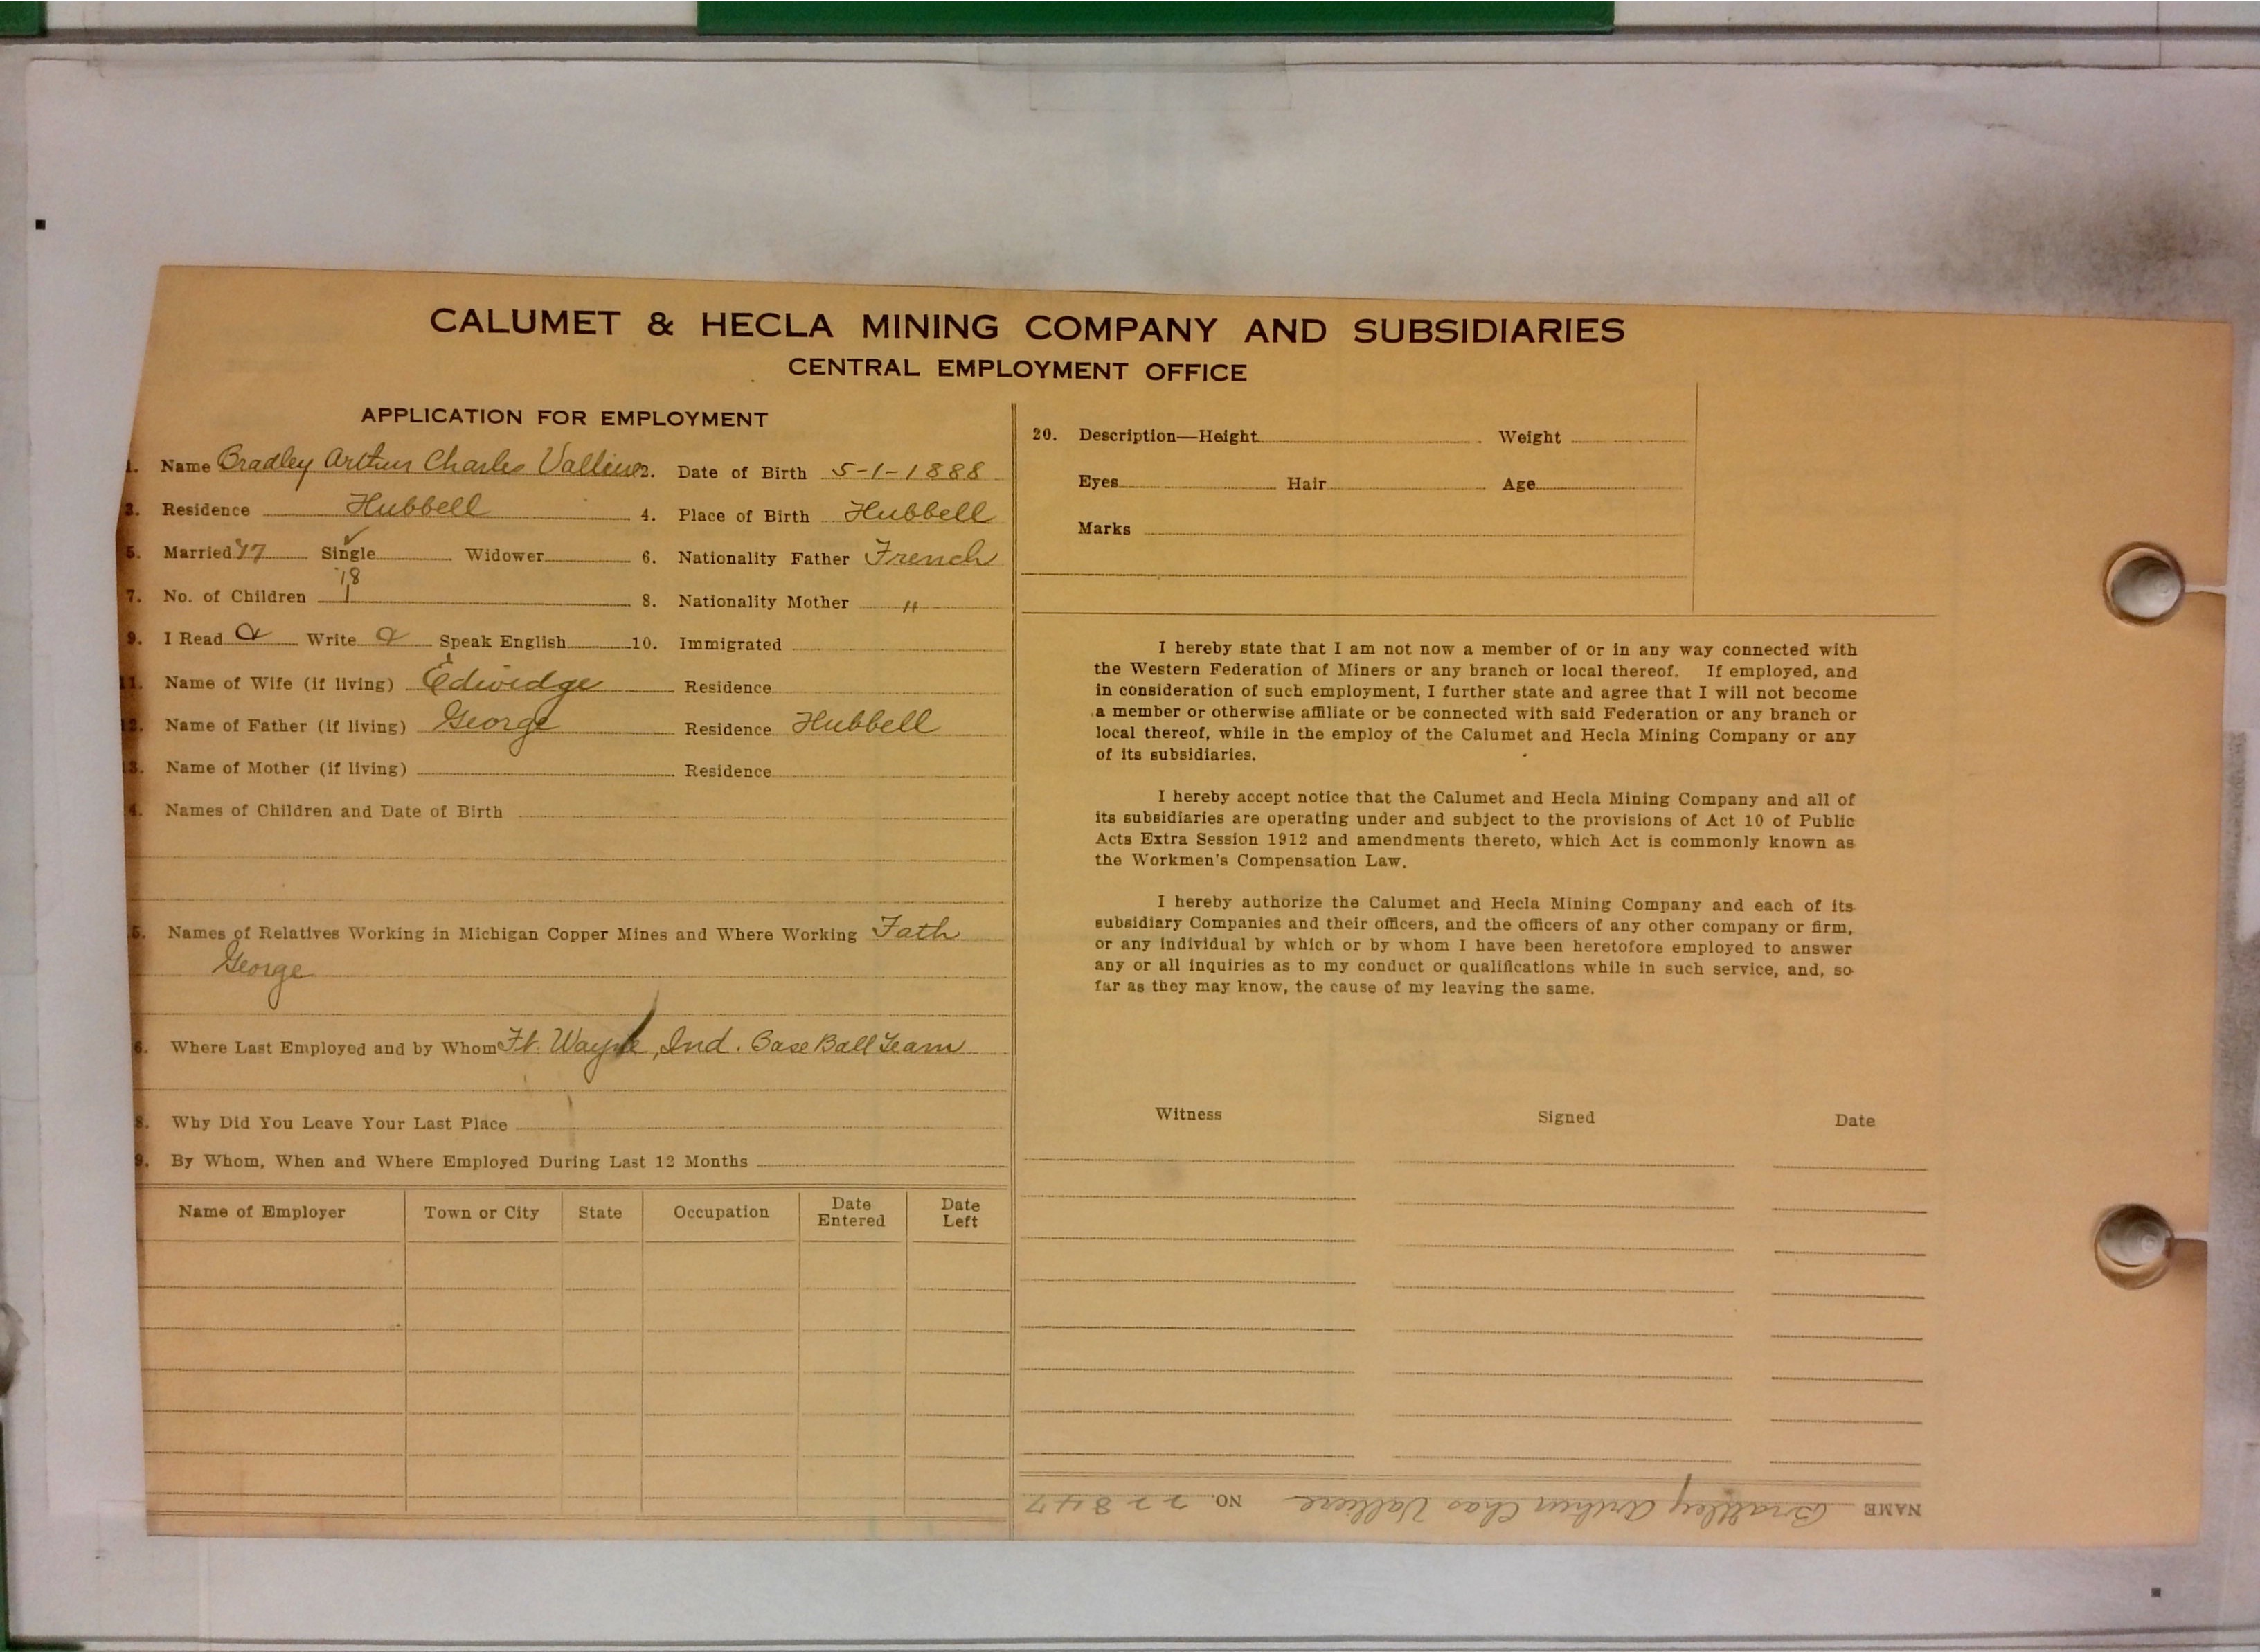 CALUMET & HECLA MINING COMPANY AND SUBSIDIARIES
CENTRAL EMPLOYMENT OFFICE
APPLICATION FOR EMPLOYMENT
1. Name Bradley Arthur Charles Valliere 2. Date of Birth 5-1-1888
3. Residence Hubbell 4. Place of Birth Hubbell
5. Married '17 Single ✓ Widower 6. Nationality Father French
'18
7. No. of Children 1 8. Nationality Mother "
9. I Read Write Speak English 10. Immigrated
11. Name of Wife (if living) Edwidge Residence
12. Name of Father (if living) George Residence Hubbell
13. Name of Mother (if living) Residence
4. Names of Children and Date of Birth
5. Names of Relatives Working in Michigan Copper Mines and Where Working Fath
George
6. Where Last Employed and by Whom Ft. Wayne, Ind. Base Ball Team
8. Why Did You Leave Your Last Place
9. By Whom, When and Where Employed During Last 12 Months
Name of Employer Town or City State Occupation Date Entered Date Left
20. Description—Height Weight
Eyes Hair Age
Marks
I hereby state that I am not now a member of or in any way connected with
the Western Federation of Miners or any branch or local thereof. If employed, and
in consideration of such employment, I further state and agree that I will not become
a member or otherwise affiliate or be connected with said Federation or any branch or
local thereof, while in the employ of the Calumet and Hecla Mining Company or any
of its subsidiaries.
I hereby accept notice that the Calumet and Hecla Mining Company and all of
its subsidiaries are operating under and subject to the provisions of Act 10 of Public
Acts Extra Session 1912 and amendments thereto, which Act is commonly known as
the Workmen's Compensation Law.
I hereby authorize the Calumet and Hecla Mining Company and each of its
subsidiary Companies and their officers, and the officers of any other company or firm,
or any individual by which or by whom I have been heretofore employed to answer
any or all inquiries as to my conduct or qualifications while in such service, and, so
far as they may know, the cause of my leaving the same.
Witness Signed Date
NAME Bradley Arthur Chas Valliere NO. 22847